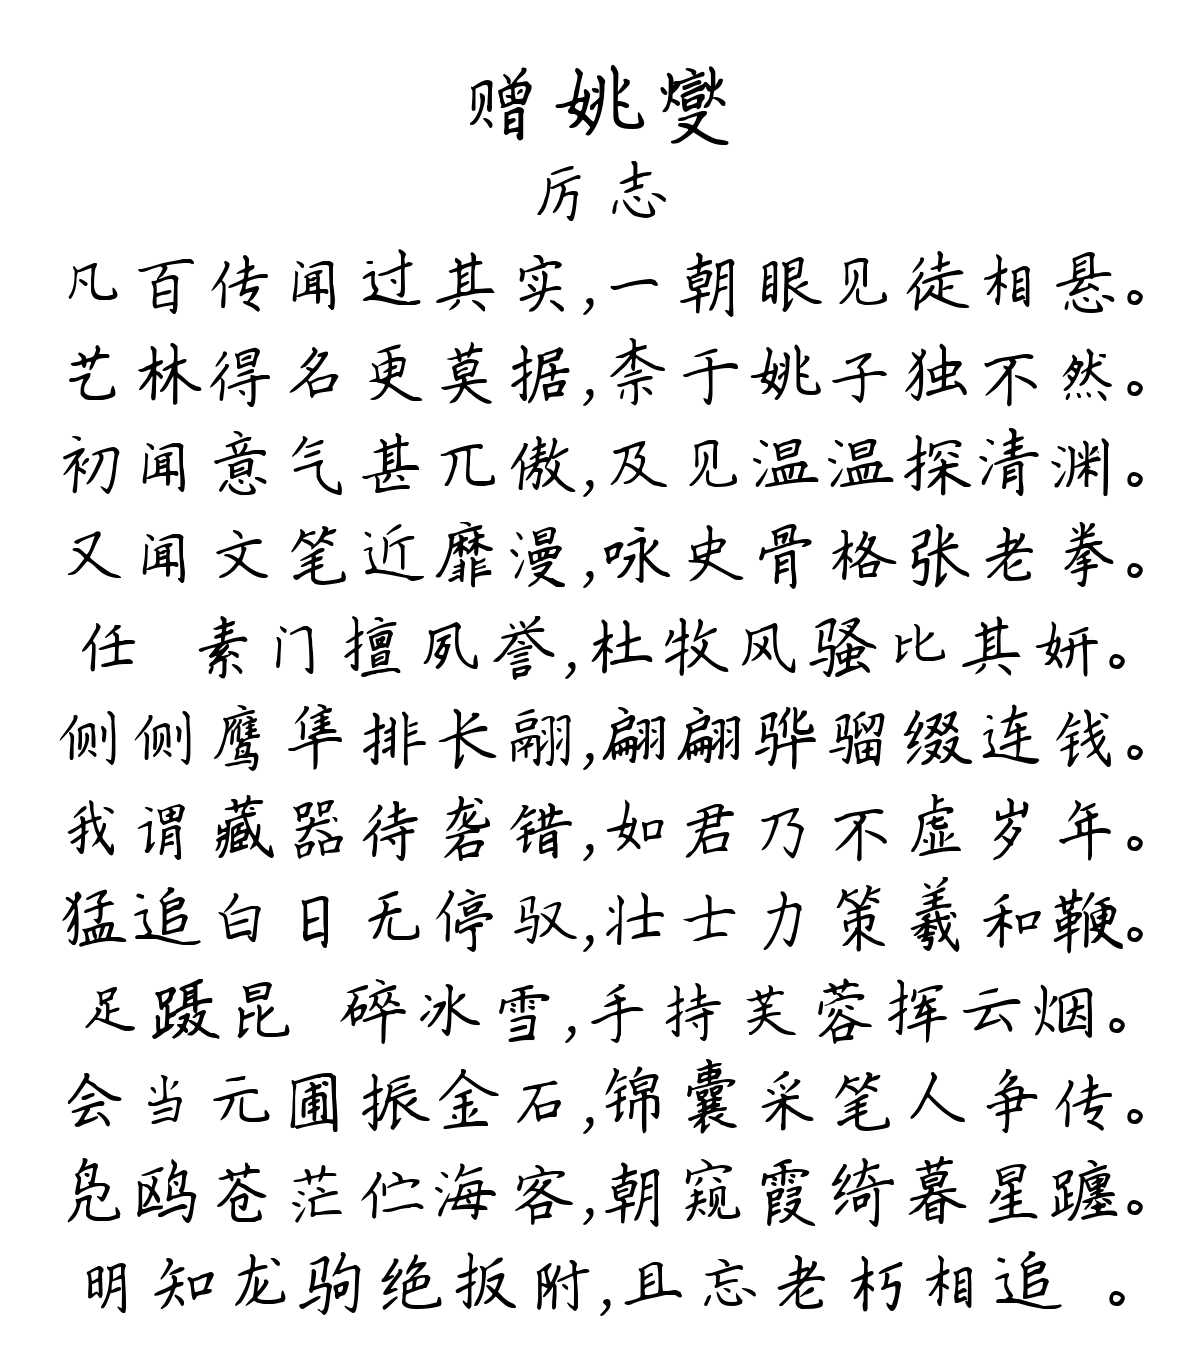 赠姚燮
厉志
凡百传闻过其实,一朝眼见徒相悬。
艺林得名更莫据,柰于姚子独不然。
初闻意气甚兀傲,及见温温探清渊。
又闻文笔近靡漫,咏史骨格张老拳。
任 素门擅夙誉,杜牧风骚比其妍。
侧侧鹰隼排长翮,翩翩骅骝缀连钱。
我谓藏器待砻错,如君乃不虚岁年。
猛追白日无停驭,壮士力策羲和鞭。
足蹑昆 碎冰雪,手持芙蓉挥云烟。
会当元圃振金石,锦囊采笔人争传。
凫鸥苍茫伫海客,朝窥霞绮暮星躔。
明知龙驹绝扳附,且忘老朽相追 。